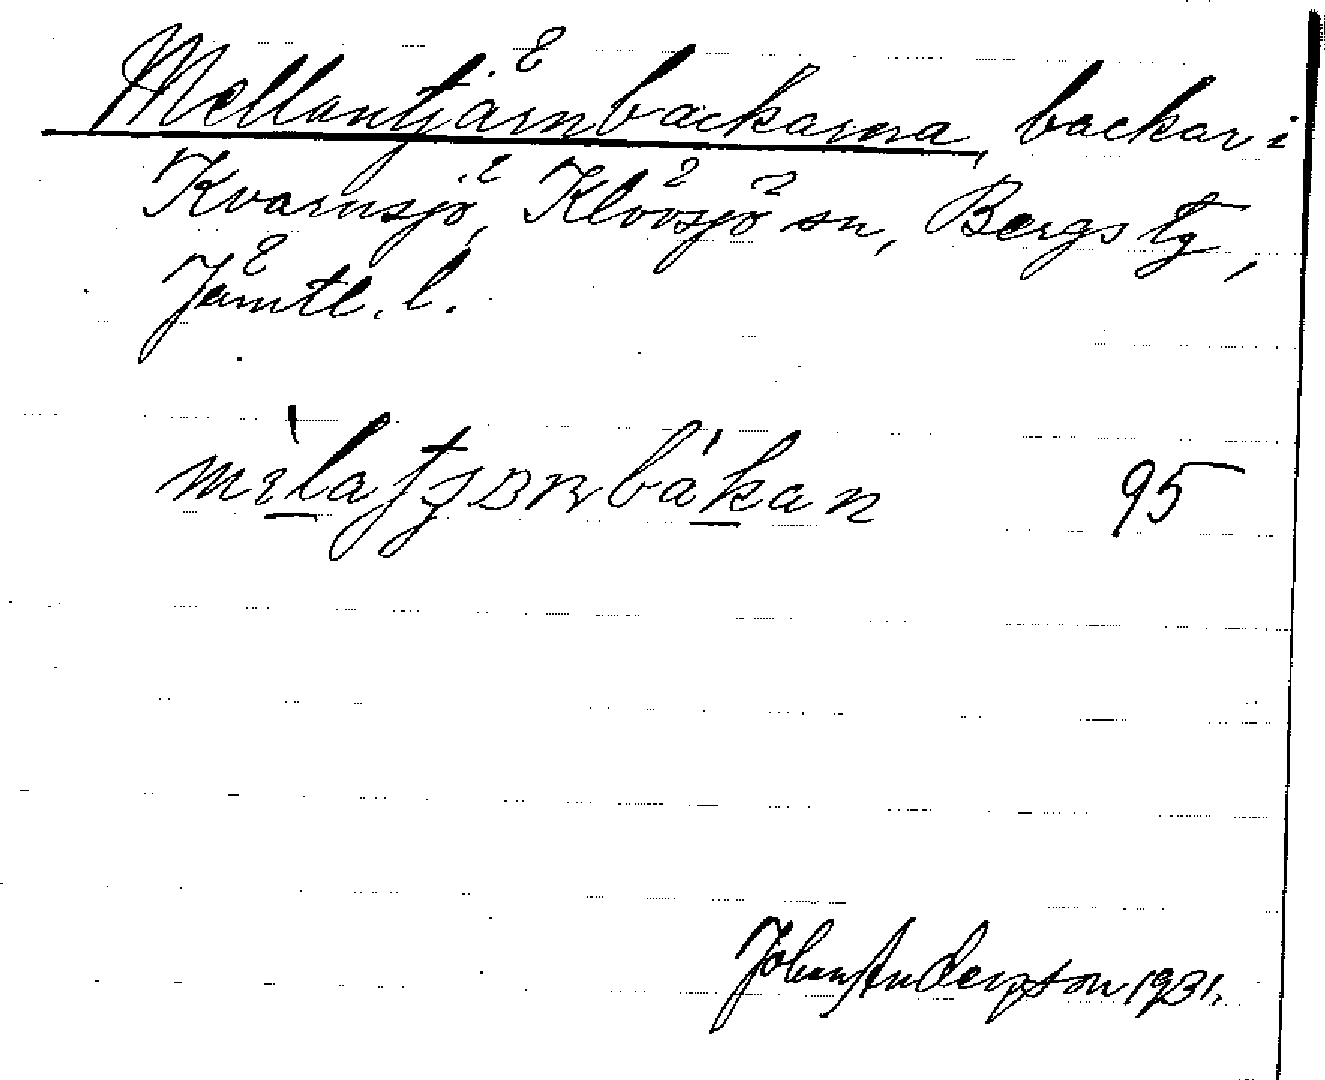 Mellantjärnbackarna, backar i
Kvarnsjö, Klövsjö sn, Bergs tg,
Jämtl. l.
95
Johan Andersson 1931.